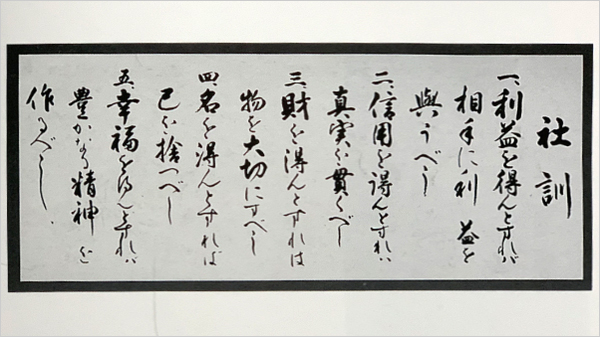 社訓
一、利益を得んとすれば
相手に利益を
與うべし
二、信用を得んとすれば
真実を貫くべし
三、財を得んとすれば
物を大切にすべし
四、名を得んとすれば
己を捨つべし
五、幸福を得んとすれば
豊かなる精神を
作るべし